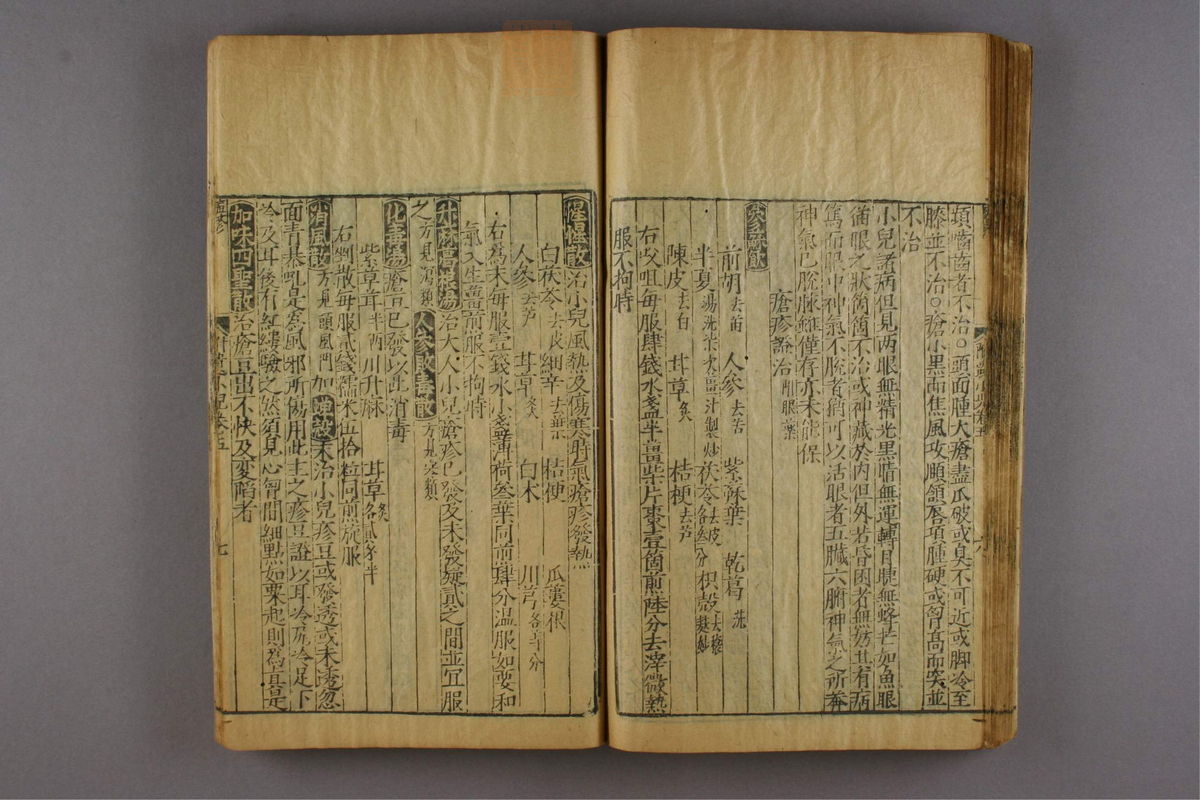 頭嚙齒者不治○頭面腫大瘡盡爪破或臭不可近或脚冷至
膝並不治○瘡小黑而焦風攻頤頷唇項腫硬或胷高而突並
不治
小兒諸病但見兩眼無精光黑睛無運轉目睫無鋒芒如魚眼
猫眼之狀箇箇不治或神藏於內但外若昏困者無妨其有病
篤而眼中神氣不脫者猶可以活眼者五臟六腑神氣之所養
神氣已脫脉雖僅存亦未能保
瘡疹證治
參蘇飲
前胡去苗 人參去芦 紫蘇葉 乾葛洗
半夏湯洗 薑汁製炒 茯苓去皮 枳殼去穰麸炒
陳皮去白 甘草炙 桔梗去芦
右㕮咀每服肆錢水盞半薑柒片棗壹箇煎陸分去滓微熱
服不拘時
惺惺散治小兒風熱及傷寒時氣瘡疹發熱
白茯苓去皮 細辛去葉 桔梗 瓜蔞根
人參去芦 甘草炙 白术 川芎各等分
右爲末每服壹錢水小盞薄荷叁葉同煎肆分溫服如要和
氣入生薑煎服不拘時
升麻葛根湯治大人小兒瘡疹已發及未發疑貳之間並宜服
之方見瀉類 人參敗毒散
化毒湯瘡豆已發以此消毒
紫草茸半兩 川升麻 甘草炙各貳錢半
右剉散每服貳錢糯米伍拾粒同煎旋服
消風散方見頭風門加蟬殼末治小兒疹豆或發透或未透忽
面青恭吼是爲風邪所傷用此主之疹豆證以耳冷尻冷足下
冷及耳後有紅縷驗之然須見心胷間細點如粟起則爲眞是
加味四聖散治瘡豆出不快及変陷者
七